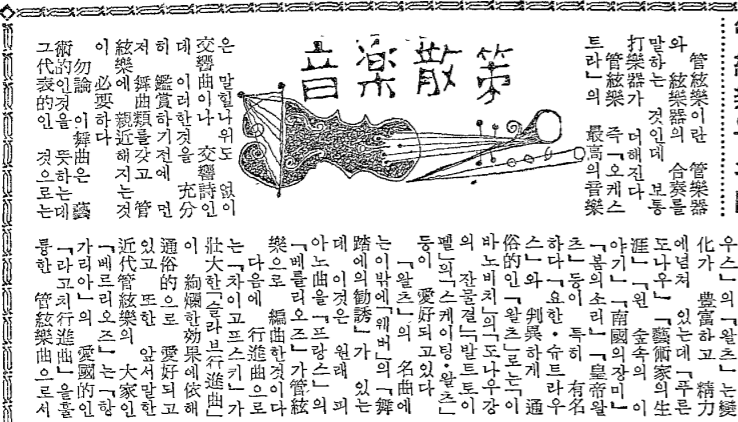 音楽散策
管絃樂이란 管樂器
와 絃樂器의 合奏를
말하는 것인데 보통
打樂器가 더해진다
管絃樂 즉「오케스
트라」의 最高의音樂
은 말할나위도 없이
交響曲이나 交響詩인
데 이러한것을 充分
히 鑑賞하기전에 먼
저 舞曲類를갖고 管
絃樂에 親近해지는것
이 必要하다
勿論 이舞曲은 藝
術的인것을 뜻하는데
그代表的인 것으로는
우스」의「왈츠」는變
化가 豊富하고 精力
에넘쳐 있는데「푸른
도나우」「藝術家의生
涯」「원 숲속의 이
야기」「南國의장미」
「봄의소리」「皇帝왈
츠」등이 특히 有名
하다「요한・슈트라우
스」와 判異하게 通
俗的인「왈츠」로는「이
바노비치」의「도나우강
의 잔물결」「발트토이
펠」의「스케이팅・왈츠」
등이 愛好되고있다
「왈츠」의 名曲에
는이밖에「웨버」의「舞
踏에의勸誘」가 있는
데 이것은 원래 피
아노曲을「프랑스」의
「베를리오즈」가管絃
樂으로 編曲한것이다
다음에 行進曲으로
는「차이코프스키」가
壯大한「슬라브行進曲」
이 絢爛한効果에依해
通俗的으로 愛好되고
있고 또한 앞서말한
近代管絃樂의 大家인
「베르리오즈」는「항
가리아」의 愛國的인
「라고치行進曲」을훌
륭한 管絃樂曲으로서